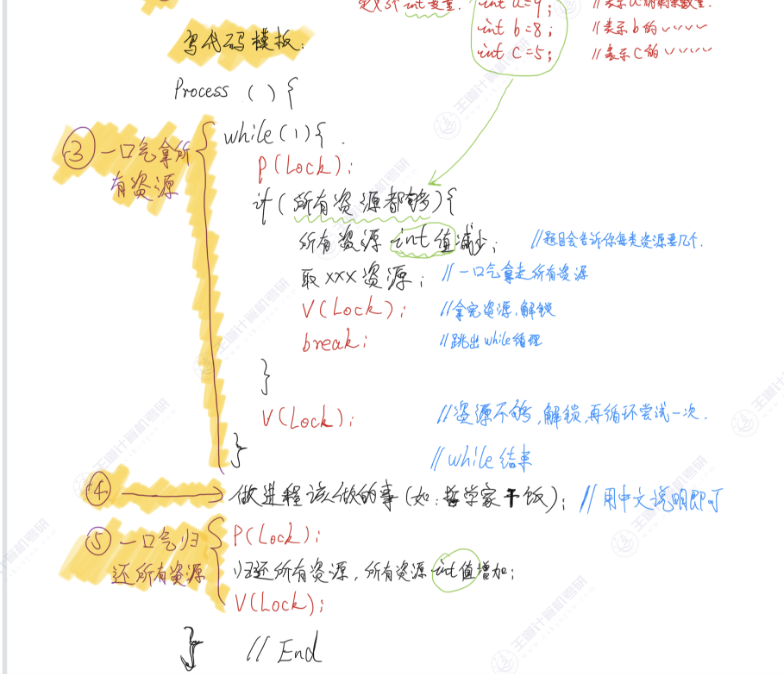 定义3个int变量. int a=9; //表示a的剩余数量.
int b=8; //表示b的〃〃〃〃
int c=5; //表示c的〃〃〃〃
写代码模板:
Process () {
③ 一口气拿所有资源
while(1){
P(Lock);
if(所有资源都够){
所有资源 int 值减少; //题目会告诉你每类资源要几个.
取xxx资源; //一口气拿走所有资源
V(Lock); //拿完资源,解锁
break; //跳出while循环
}
V(Lock); //资源不够,解锁,再循环尝试一次.
} //while结束
④ 做进程该做的事(如:哲学家干饭); //用中文说明即可
⑤ 一口气归还所有资源
P(Lock);
归还所有资源,所有资源int值增加;
V(Lock);
} //End
王道计算机考研